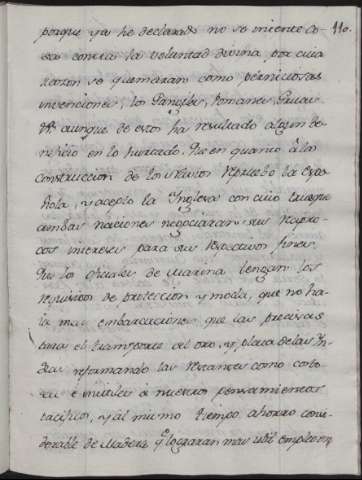 110.
porque ya he declarado no se intente co
sa contra la voluntad divina, por cuia
razon se quemaran como perniciosas
invenciones, los
aunque de estos ha resultado algun be
neficio en lo hurtado. Que en quanto à la
construccion de los Navios repruebo la Espa
ñola, y acepto la Inglesa con cuio
ambas naciones negociaran sus recipro
cos intereses para sus respectivos fines.
Que los oficiales de Marina tengan los
requisitos de proteccion y moda, que no ha
ia mas embarcaciones que las precisas
para el transporte del oro, y plata de las In
dias reformando las restantes como costo
sas e inutiles à nuestros pensamientos
pacificos, y al mismo tiempo ahorro consi
derable de Madera, y lograran mas util empleo en